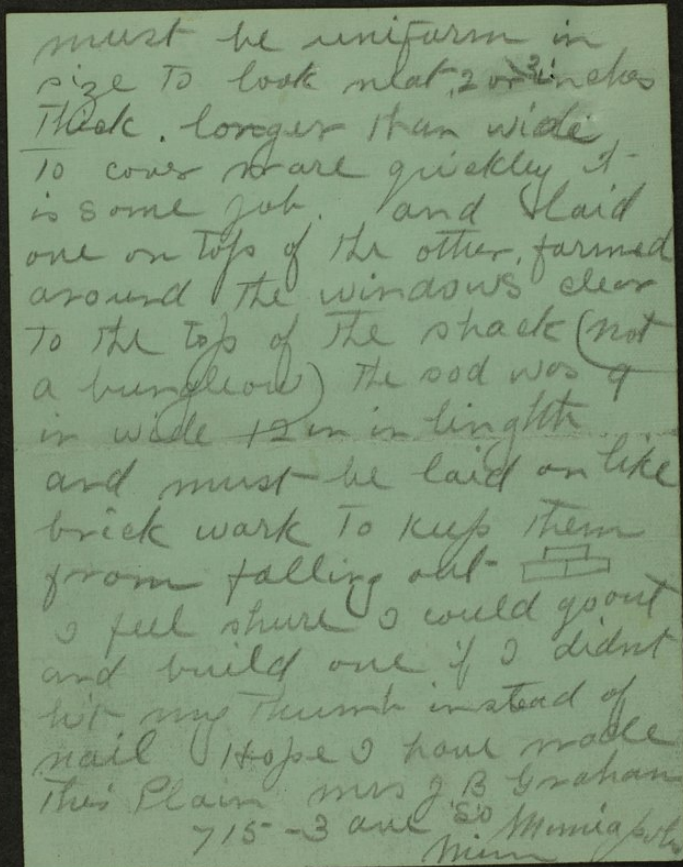 must be uniform in
size To look neat, 2 or 3 inches
Thick. longer than wide
To cover more quickley it
is some job. and laid
one on top of the other, formed
around the windows clear
To the top of the shack (not
a bunglow) the sod was 9
in wide 12 in in linghth
and must be laid on like
brick work To keep them
from falling out
I feel shure I could go out
and build one if I didnt
hit my Thumb instead of
nail Hope I have made
This Plain Mrs J B Graham
715-3 ave So Minneapolis
Minn